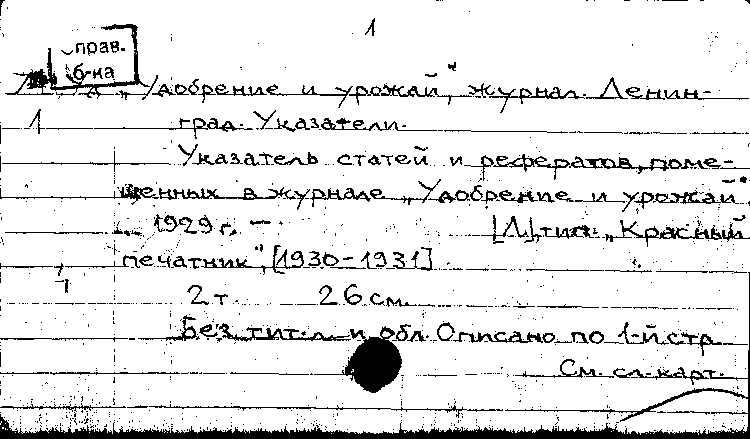 1
прав.
б-ка
„Удобрение и урожай", журнал. Ленин-
1 град. Указатели.
Указатель статей и рефератов, поме-
щенных в журнале „Удобрение и урожай".
1929 г. —. [Л], тип. „Красный
печатник", [1930-1931]
2 т. 26 см.
Без тит. л. и обл. Описано по 1-й стр
См. сл. карт.